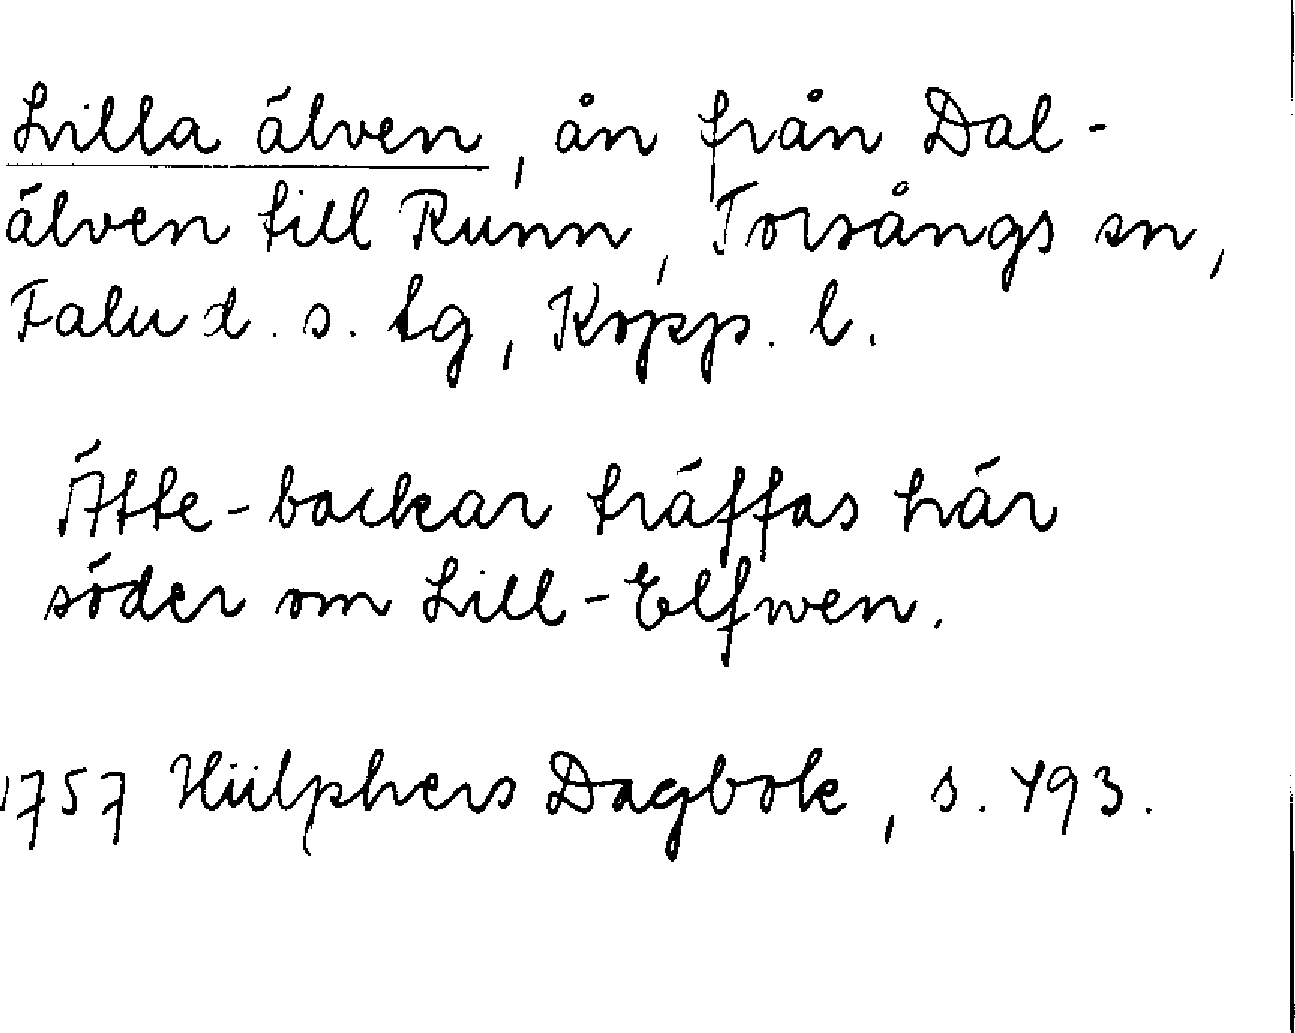 Lilla älven, ån från Dal-
älven till Runn, Torsångs sn,
Falu d. s. tg, Kopp. l.
Ätte-backar träffas här
söder om Lill-Elfwen.
1757 Hülphers Dagbok, s. 493.